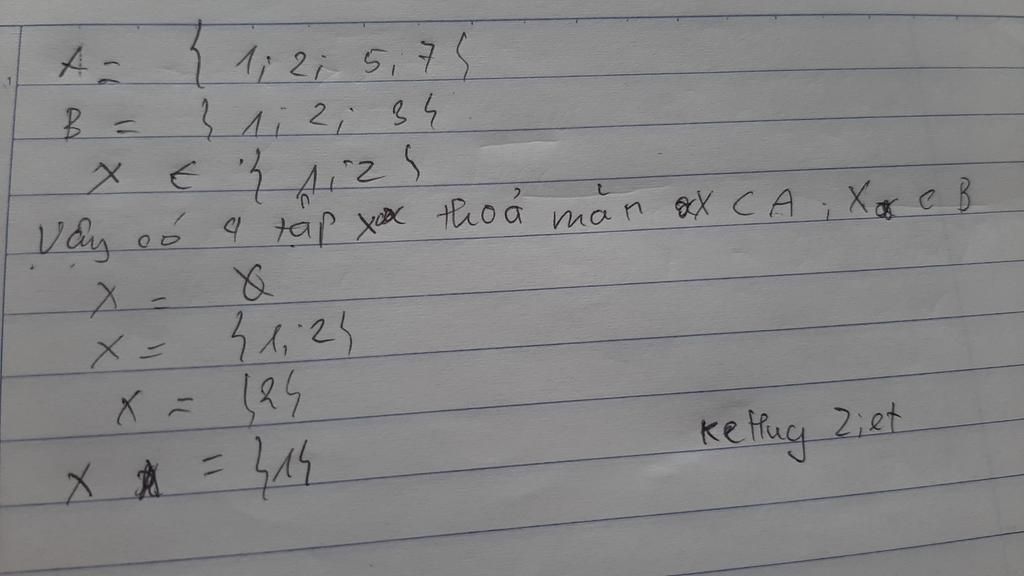 A = { 1; 2; 5; 7 }
B = { 1; 2; 3 }
X ∈ { 1; 2 }
Vậy có 4 tập X thoả mãn X ⊂ A; X ⊂ B
X = ∅
X = { 1; 2 }
X = { 2 }
X = { 1 }
Kethug Ziet